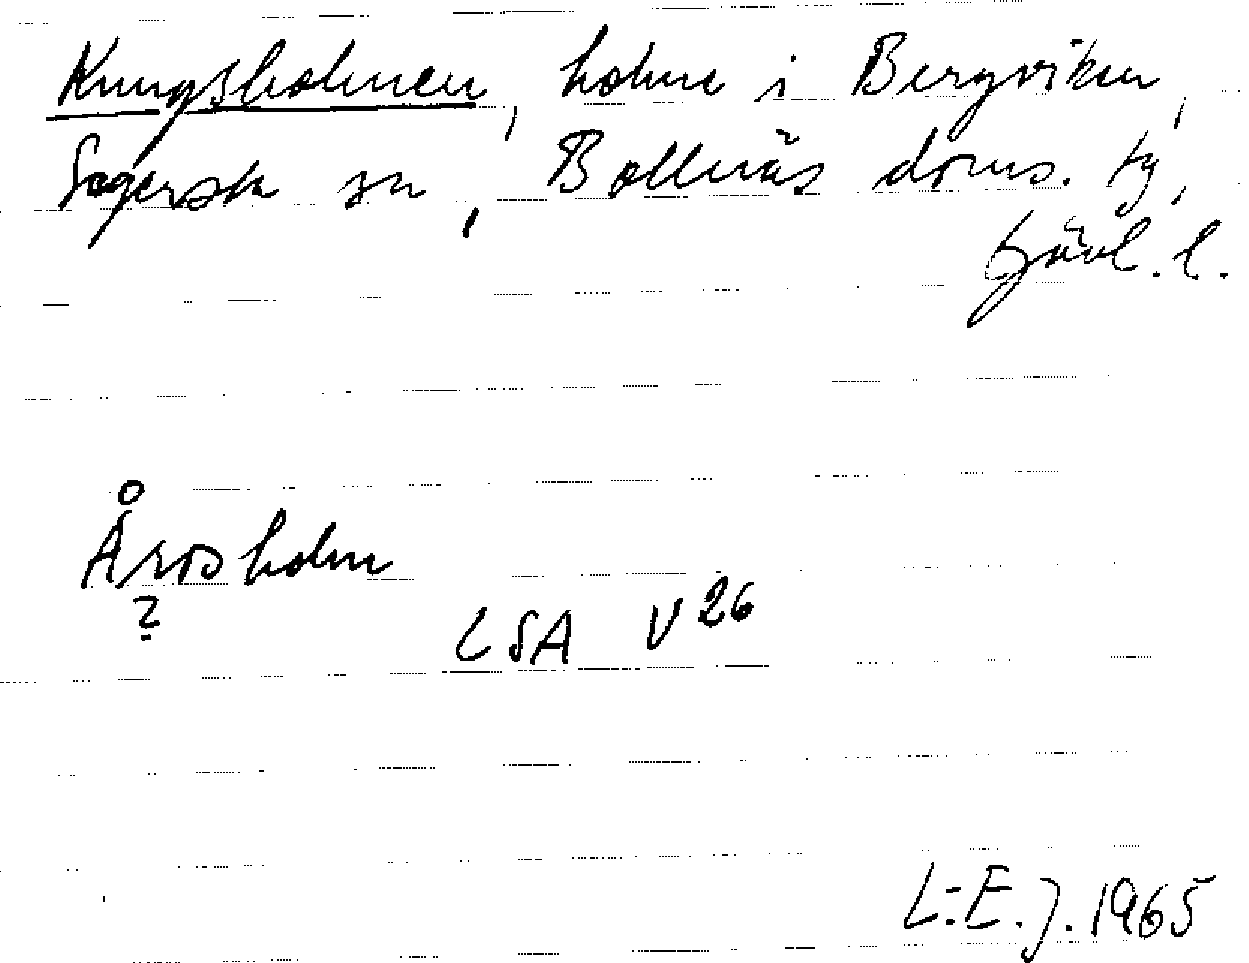 Kungsholmen, holme i Bergviken,
Segersta sn, Bollnäs doms. tg,
Gävl. l.
Årsholm
?
LSA V 26
L-E. J. 1965